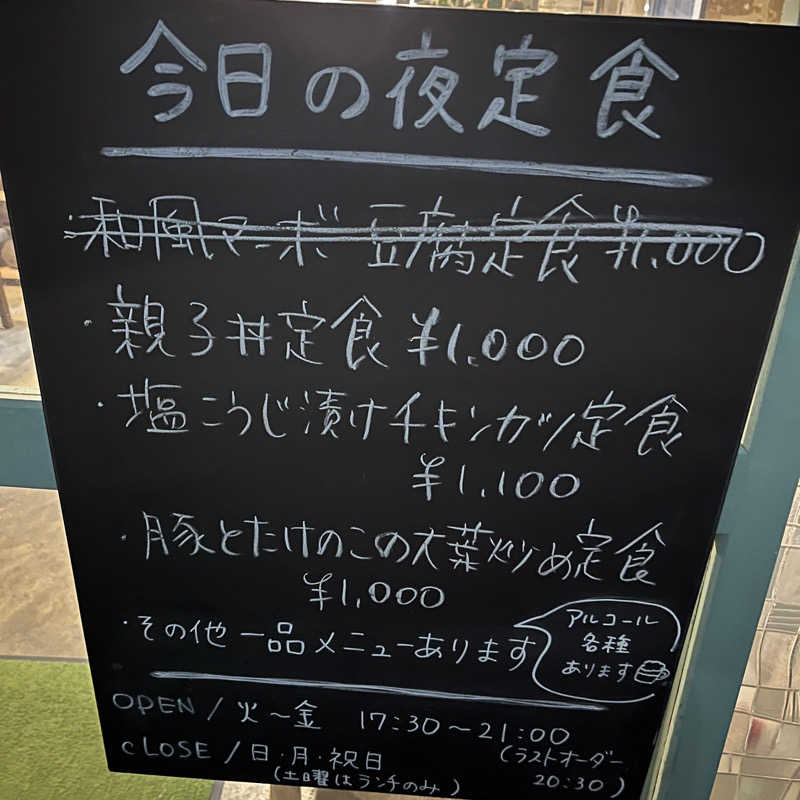 今日の夜定食
・和風マーボー豆腐定食 ¥1,000
・親子丼定食 ¥1,000
・塩こうじ漬けチキンカツ定食
¥1,100
・豚とたけのこの大葉炒め定食
¥1,000
・その他一品メニューあります
アルコール
各種
あります
OPEN / 火～金 17:30～21:00
(ラストオーダー
20:30)
CLOSE / 日・月・祝日
(土曜はランチのみ)